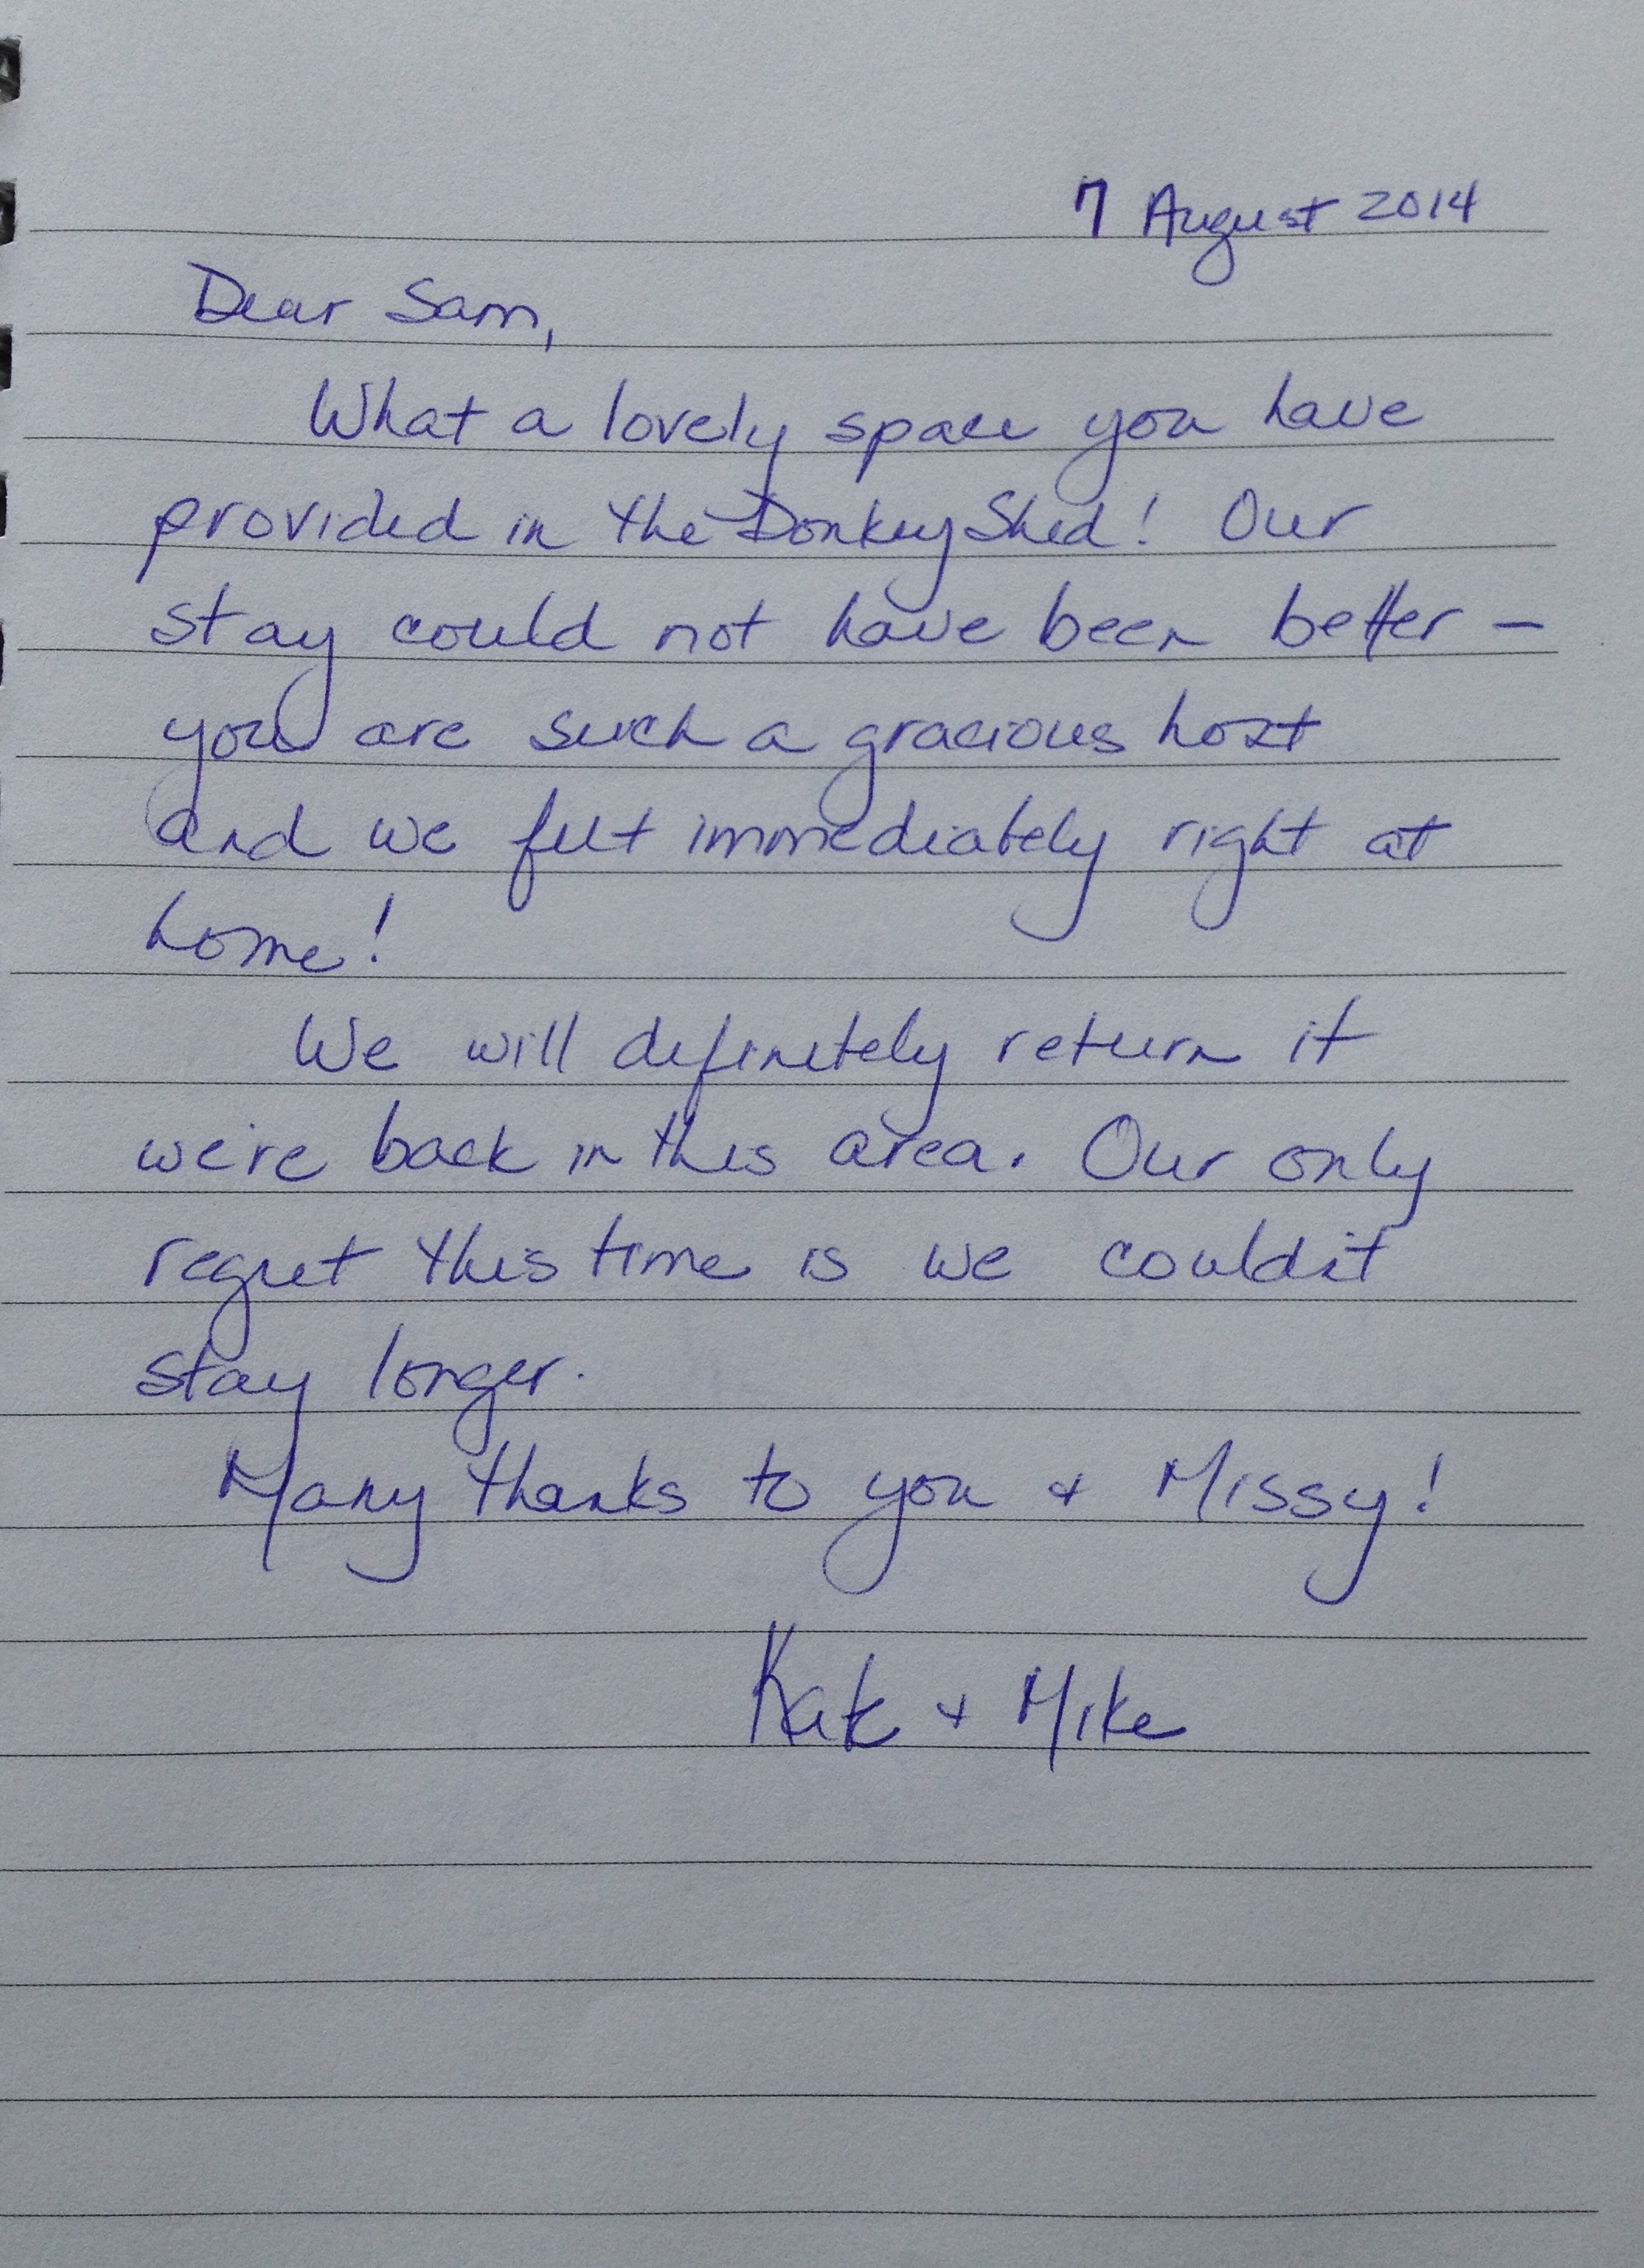 7 August 2014
Dear Sam,
What a lovely space you have
provided in the Donkey Shed! Our
stay could not have been better –
you are such a gracious host
and we felt immediately right at
home!
We will definitely return if
we're back in this area. Our only
regret this time is we couldn't
stay longer.
Many thanks to you + Missy!
Kate + Mike